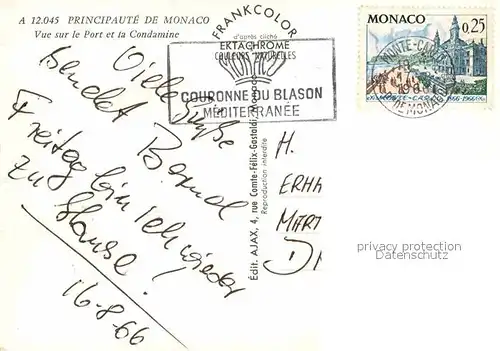 A 12.045 PRINCIPAUTÉ DE MONACO
Vue sur le Port et la Condamine
FRANKCOLOR
d'après cliché
EKTACHROME
COULEURS NATURELLES
COURONNE DU BLASON
MÉDITERRANÉE
MONACO
0,25
MONTE-CARLO
1966
DE MONACO
1866-1966
Viele Grüße
sendet Bernd
Freitag bin ich wieder
zu Hause!
16-8-66
Édit. AJAX, 4, rue Comte-Félix-Gastaldi, Monaco
Reproduction interdite
H.
ERHA
MART
D
privacy protection
Datenschutz